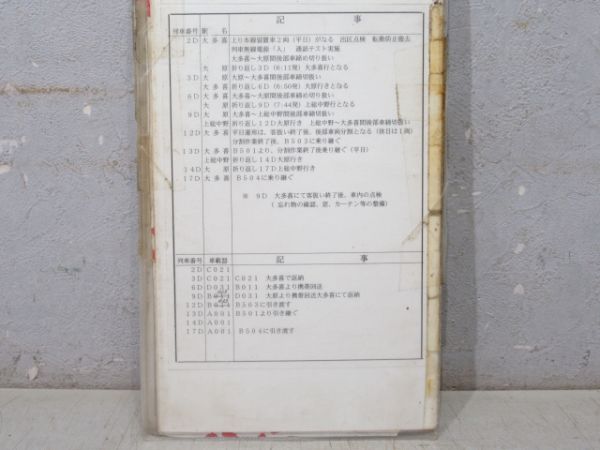 記 事
列車番号 駅 名
2D 大多喜 上り本線留置車2両(平日)がなる 出区点検 転動防止撤去
列車無線電源「入」 通話テスト実施
大多喜~大原間後部車締め切り扱い
大 原 折り返し3D(6:11発)大多喜行となる
3D 大 原 大原~大多喜間後部車締切扱い
大多喜 折り返し6D(6:50発)大原行きとなる
6D 大多喜 大多喜~大原間後部車締め切り扱い
大 原 折り返し9D(7:44発)上総中野行となる
9D 大 原 大多喜~上総中野間後部車締切扱い
上総中野 折り返し12D大原行き 上総中野~大多喜間後部車締切扱い
12D 大多喜 平日運用は、客扱い終了後、後部車両分割となる(休日は1両)
分割作業終了後、B503に乗り継ぐ
13D 大多喜 B501より、分割作業終了後乗り継ぐ(平日)
上総中野 折り返し14D大原行き
14D 大 原 折り返し17D上総中野行き
17D 大多喜 B504に乗り継ぐ
※ 9D 大多喜にて客扱い終了後、車内の点検
(忘れ物の確認、窓、カーテン等の整備)
列車番号 車載器 記 事
2D C021
3D C021 C021 大多喜で返納
6D D031 B011 大多喜より携帯回送
9D D031 大原より携帯回送大多喜にて返納
12D B503に引き渡す
13D A001 B501より引き継ぐ
14D A001
17D A001 B504に引き渡す